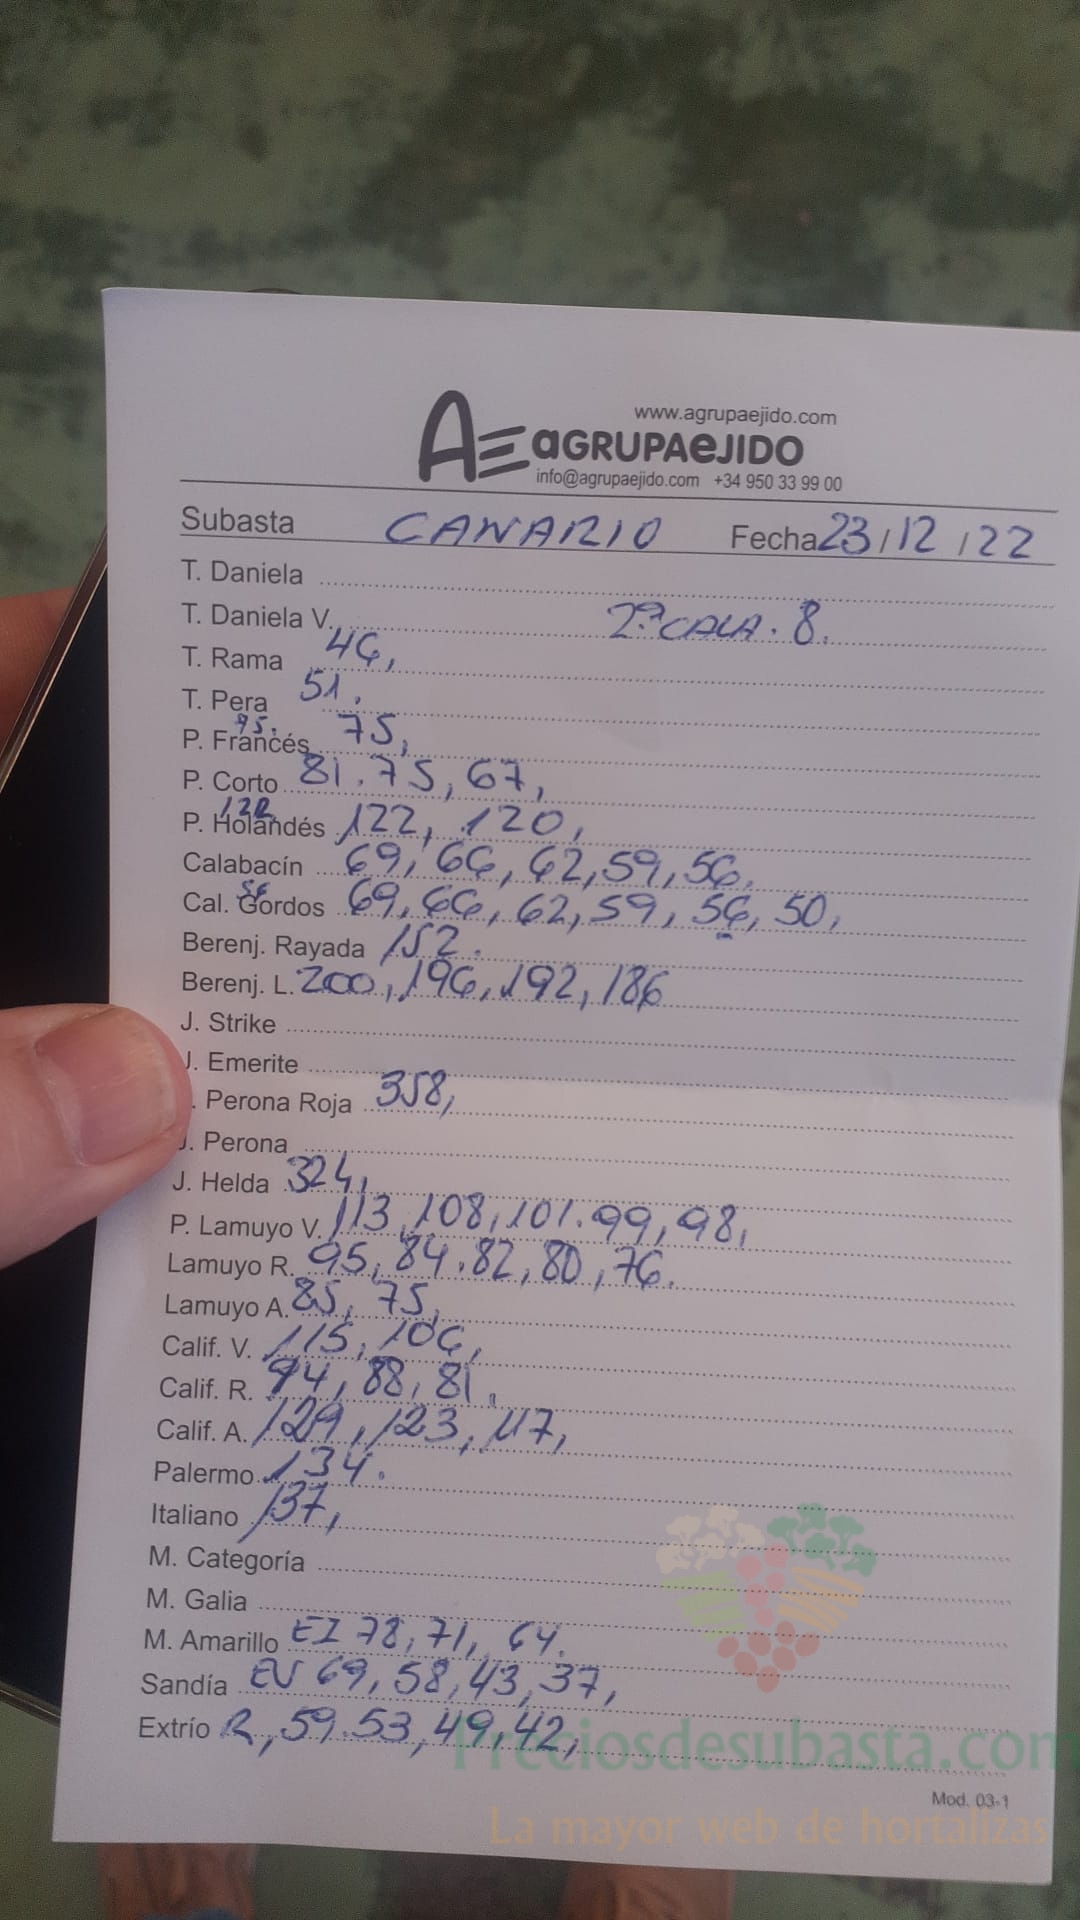 www.agrupaejido.com
AE aGRUPAeJIDO
info@agrupaejido.com +34 950 33 99 00
Subasta CANARIO Fecha 23/12/22
T. Daniela
T. Daniela V. 2ª CALA. 8.
T. Rama 46,
T. Pera 51.
P. Francés 95. 75,
P. Corto 81. 75, 67,
P. Holandés 122, 120,
Calabacín 69, 66, 62, 59, 56,
Cal. Gordos 69, 66, 62, 59, 56, 50,
Berenj. Rayada 152.
Berenj. L. 200, 196, 192, 186
J. Strike
J. Emerite
. Perona Roja 358,
J. Perona
J. Helda 324,
P. Lamuyo V. 113, 108, 101. 99, 98,
Lamuyo R. 95, 84. 82, 80, 76.
Lamuyo A. 85, 75,
Calif. V. 115, 106,
Calif. R. 94, 88, 81.
Calif. A. 129, 123, 117,
Palermo 134.
Italiano 137,
M. Categoría
M. Galia
M. Amarillo EI 78, 71, 64.
Sandía EV 69, 58, 43, 37,
Extrío R, 59. 53, 49, 42,
Preciosdesubasta.com
Mod. 03-1
La mayor web de hortalizas